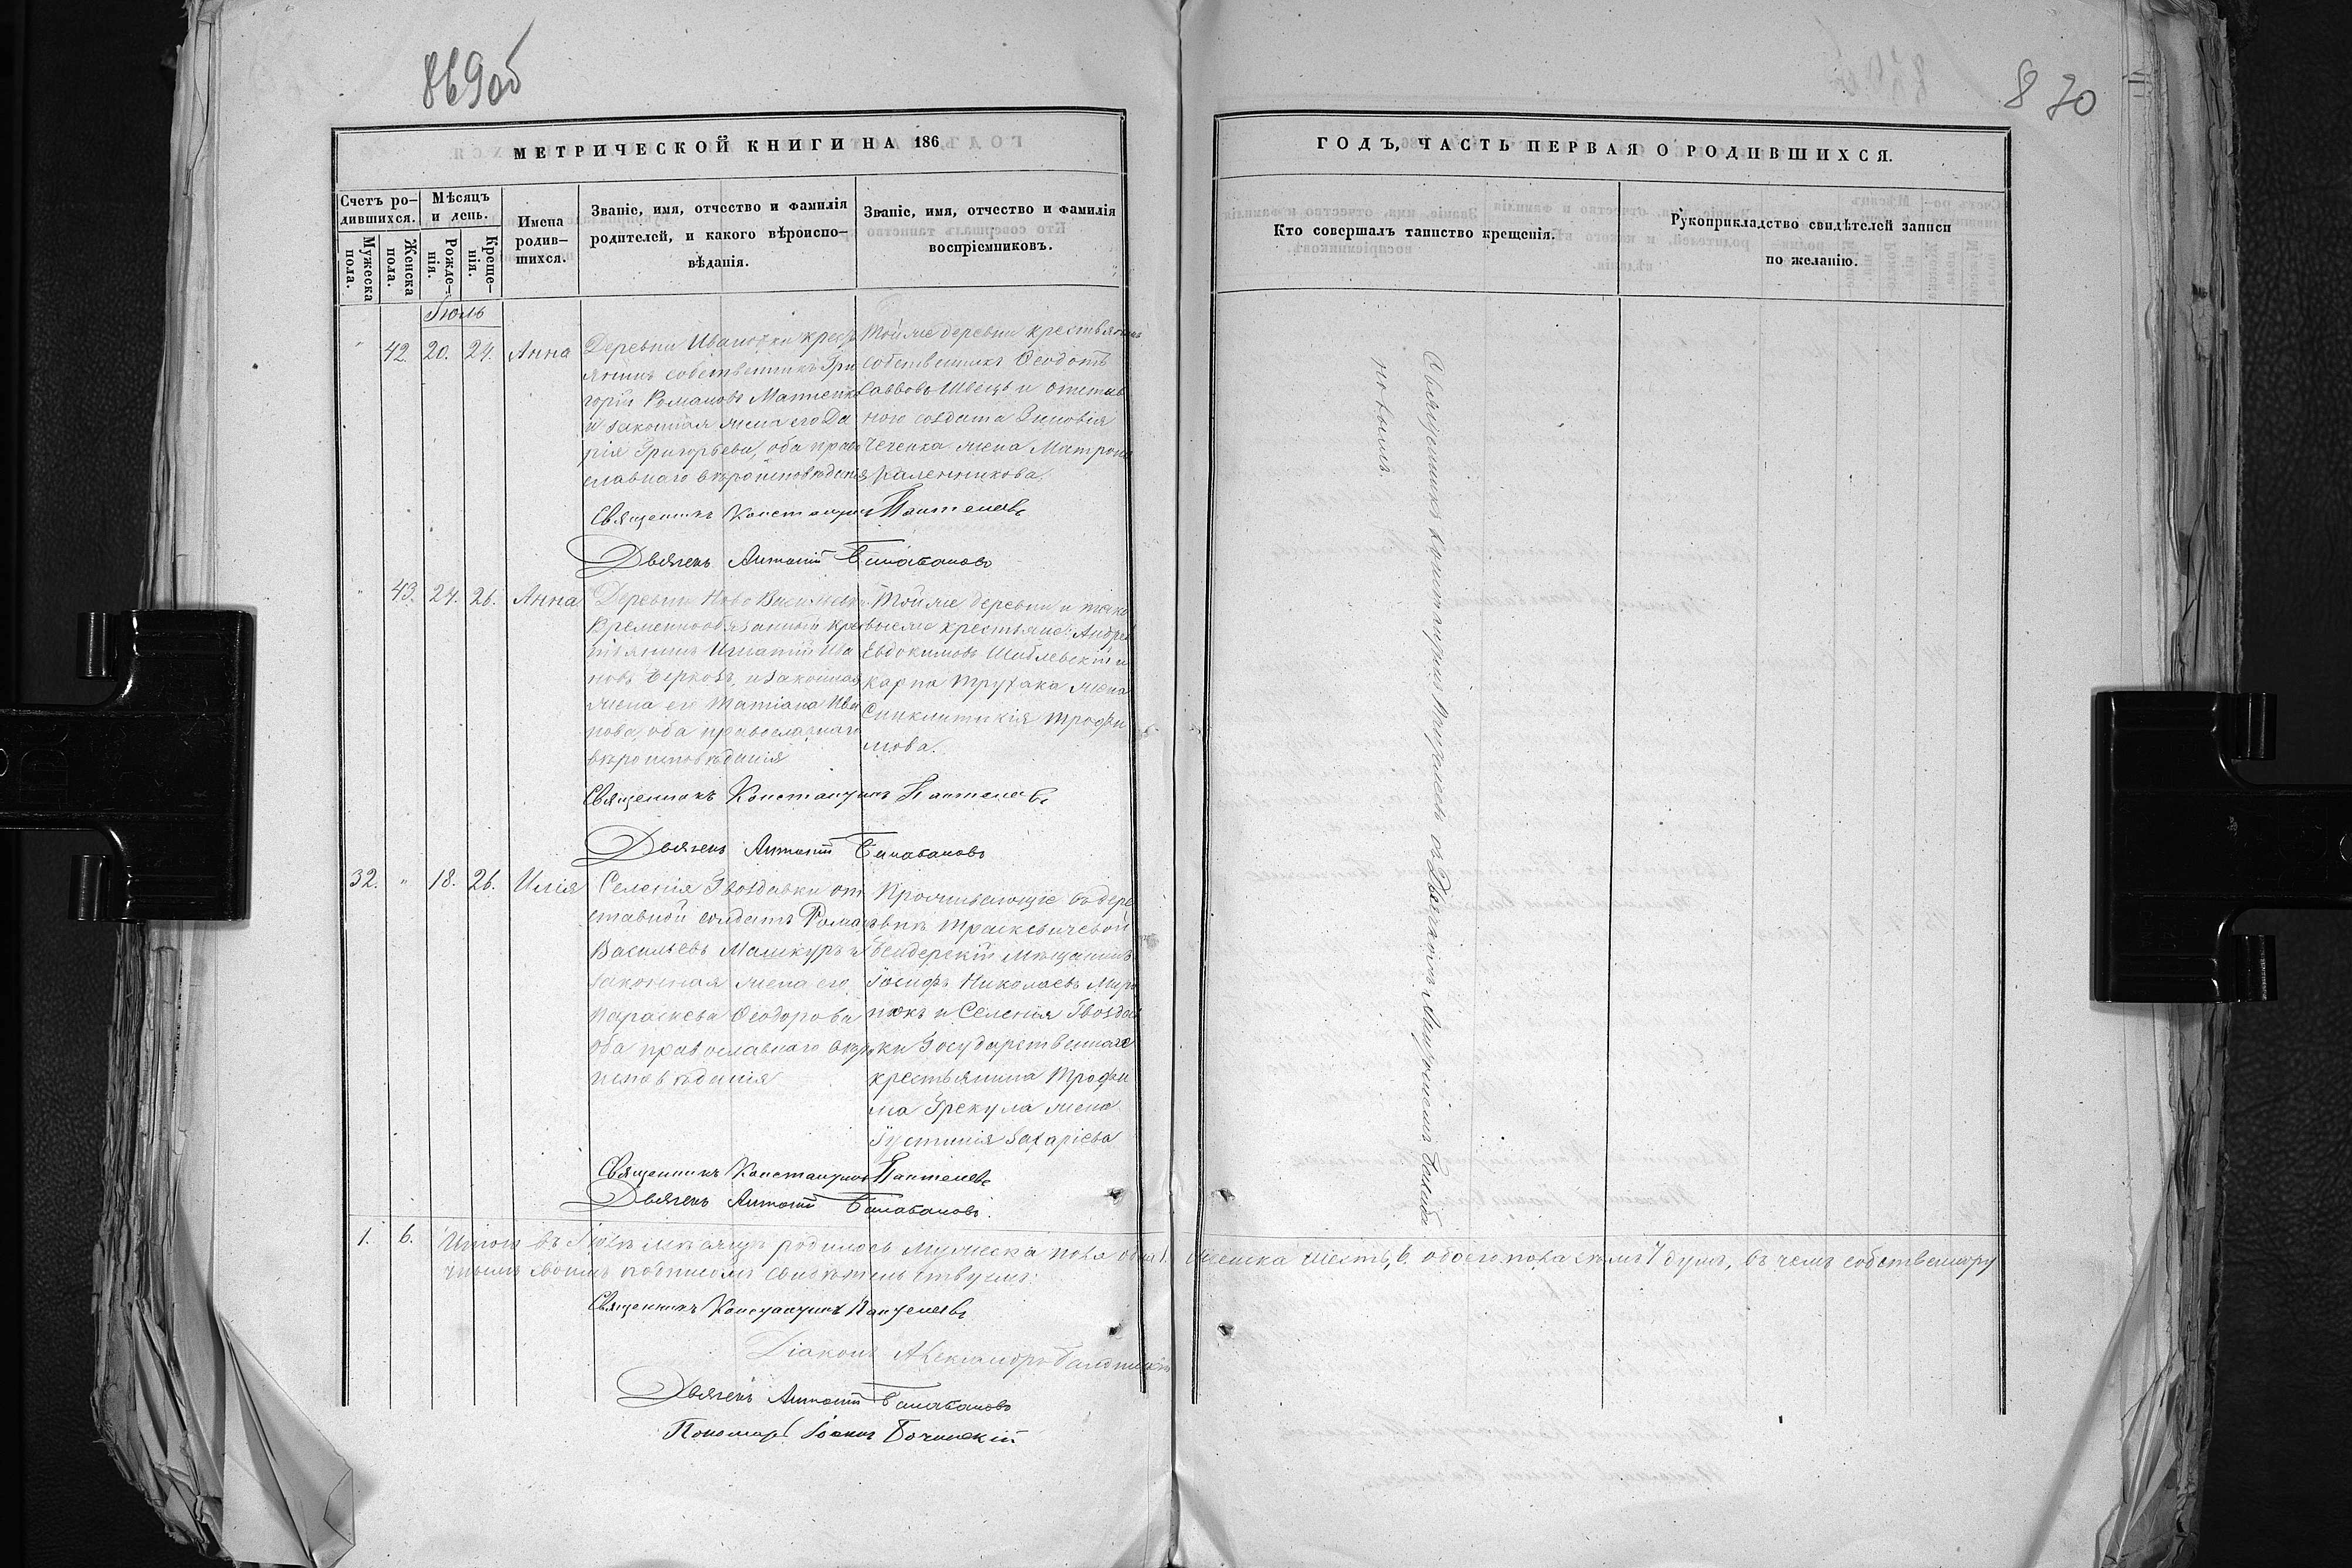 869об
870
МЕТРИЧЕСКОЙ КНИГИ НА 186
ГОДЪ, ЧАСТЬ ПЕРВАЯ О РОДИВШИХСЯ.
Счетъ родившихся.
Мужеска пола.
Женска пола.
Мѣсяцъ и день.
Рожденія.
Крещенія.
Имена родившихся.
Званіе, имя, отчество и фамилія
родителей, и какого вѣроиспо-
вѣданія.
Званіе, имя, отчество и фамилія
воспріемниковъ.
Кто совершалъ таинство крещенія.
Рукоприкладство свидѣтелей записи
по желанію.
Іюль
" 42. 20. 24. Анна
Деревни Ивановки крестъ
янинъ собственникъ Гри
горій Романовъ
и законная жена его Да
рія Григорьева, оба право
славнаго вѣроисповѣданія
Той же деревни крестьянинъ
собственникъ Ѳеодотъ
Саввовъ Швецъ и отстав
ною солдата Зиновія
Чеченка жена Матрона
Каленникова.
Священникъ Константинъ Пантелеевъ
Дьячекъ Антоній Балабановъ
" 43. 24. 26. Анна
Деревни Ново
Временнообязанный крес
тьянинъ Игнатій Ива
новъ и законная
жена его Татіана Ива
нова, оба православнаго
вѣроисповѣданія
Той же деревни и тако
вые же крестьяне: Андрей
Евдокимовъ и
Карпа Трухака жена
Синклитикія Трофи
мова.
Священникъ Константинъ Пантелеевъ
Дьячекъ Антоній Балабановъ
32. " 18. 26. Илія
Селенія Гвоздавки от
ставной солдатъ Романъ
Васильевъ Машкуръ и
законная жена его
Параскева Ѳеодорова
оба православнаго вѣро
исповѣданія
Проживающіе въ дере
внѣ Траскевичевой
Бендерскій мѣщанинъ
Іосифъ Николаевъ
и Селенія Гвоздав
ки Государственнаго
крестьянина Трофи
ма Грекула жена
Іустинія Захаріева
Священникъ Константинъ Пантелеевъ
Дьячекъ Антоній Балабановъ.
Священникъ Константинъ Пантелеевъ съ Дьячкомъ Антоніемъ Балаба
новымъ.
1. 6. Итого въ Іюлѣ мѣсяцѣ родилось мужеска пола одна 1. женска шесть, 6. обоего пола семь 7 душъ, въ чемъ собственнору
чнымъ своимъ подписомъ свидѣтельствуемъ:
Священникъ Константинъ Пантелеевъ
Діаконъ Александръ
Дьячекъ Антоній Балабановъ
Пономарь Іоаннъ Бочинскій